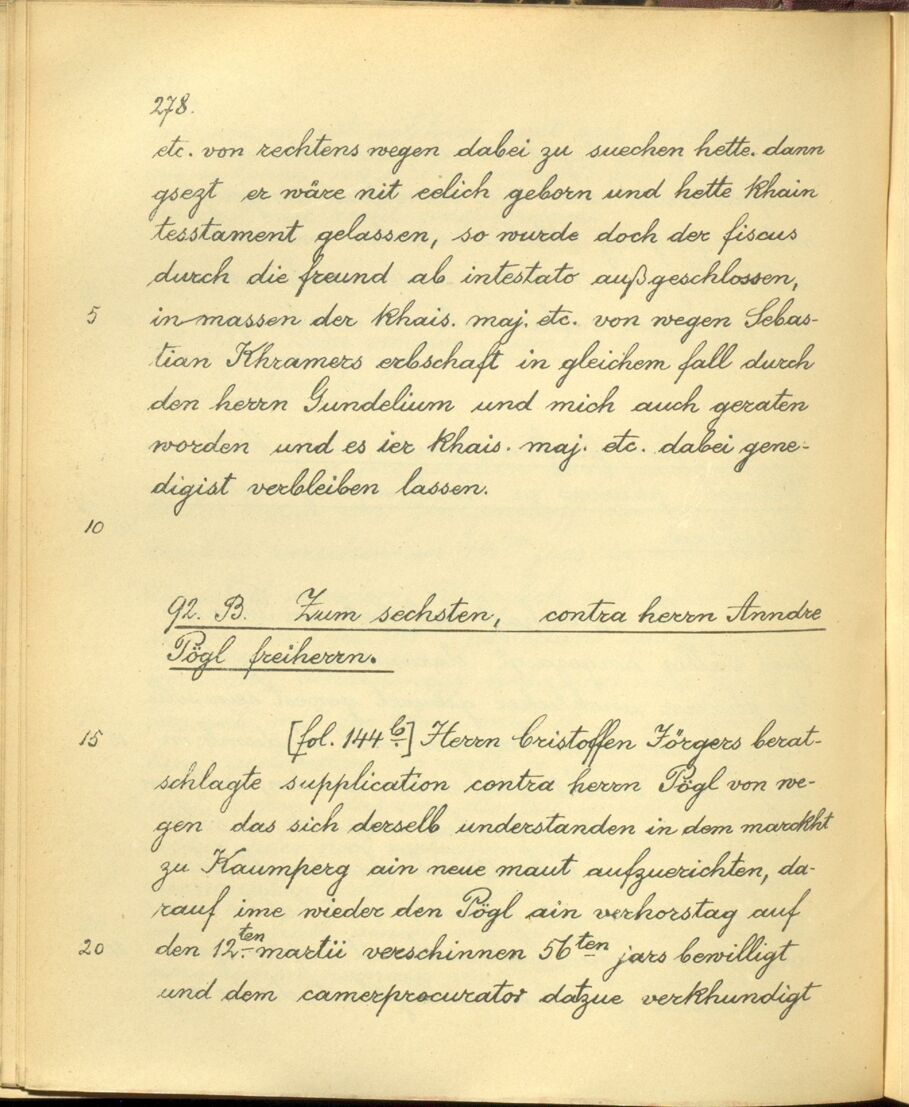 278.
etc. von rechtens wegen dabei zu suechen hette. dann
gsezt er wäre nit eelich geborn und hette khain
tesstament gelassen, so wurde doch der fiscus
durch die freund ab intestato außgeschlossen,
5 in massen der khais. maj. etc. von wegen Sebas-
tian Khramers erbschaft in gleichem fall durch
den herrn Gundelium und mich auch geraten
worden und es ier khais. maj. etc. dabei gene-
digist verbleiben lassen.
10
92. B. Zum sechsten, contra herrn Anndre
Pögl freiherrn.
15 [fol. 144 b.] Herrn Cristoffen Jörgers berat-
schlagte supplication contra herrn Pögl von we-
gen das sich derselb understanden in dem marckht
zu Kaumperg ain neue maut aufzuerichten, da-
rauf ime wieder den Pögl ain verhorstag auf
20 den 12.ten martii verschinnen 56ten jars bewilligt
und dem camerprocurator datzue verkhundigt